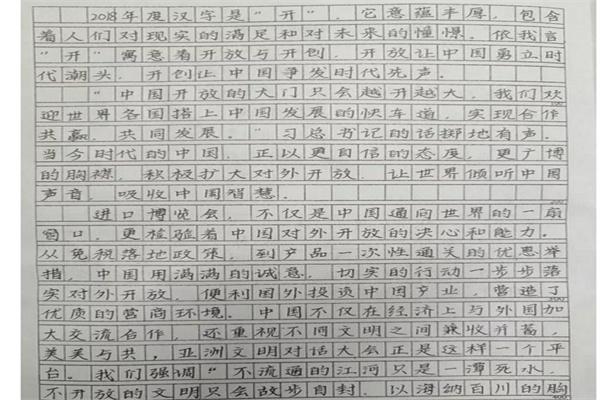 2018年度汉字是"开"，它意蕴丰厚，包含
着人们对现实的满足和对未来的憧憬。依我言
"开"寓意着开放与开创，开放让中国勇立时
代潮头，开创让中国争发时代先声。
"中国开放的大门只会越开越大，我们欢
迎世界各国搭上中国发展的快车道，实现合作
共赢，共同发展。"习总书记的话掷地有声。
当今时代的中国，正以更自信的态度，更广博
的胸襟，积极扩大对外开放，让世界倾听中国
声音，吸收中国智慧。
进口博览会，不仅是中国通向世界的一扇
窗口，更检验着中国对外开放的决心和能力。
从免税落地政策，到产品一次性通关的优惠举
措，中国用满满的诚意，切实的行动一步步落
实对外开放，便利国外投资中国产业，营造了
优质的营商环境。中国不仅在经济上与外国加
大交流合作，还重视不同文明之间兼收并蓄，
美美与共，亚洲文明对话大会正是这样一个平
台。我们强调"不流通的江河只是一潭死水，
不开放的文明只会故步自封。以海纳百川的胸